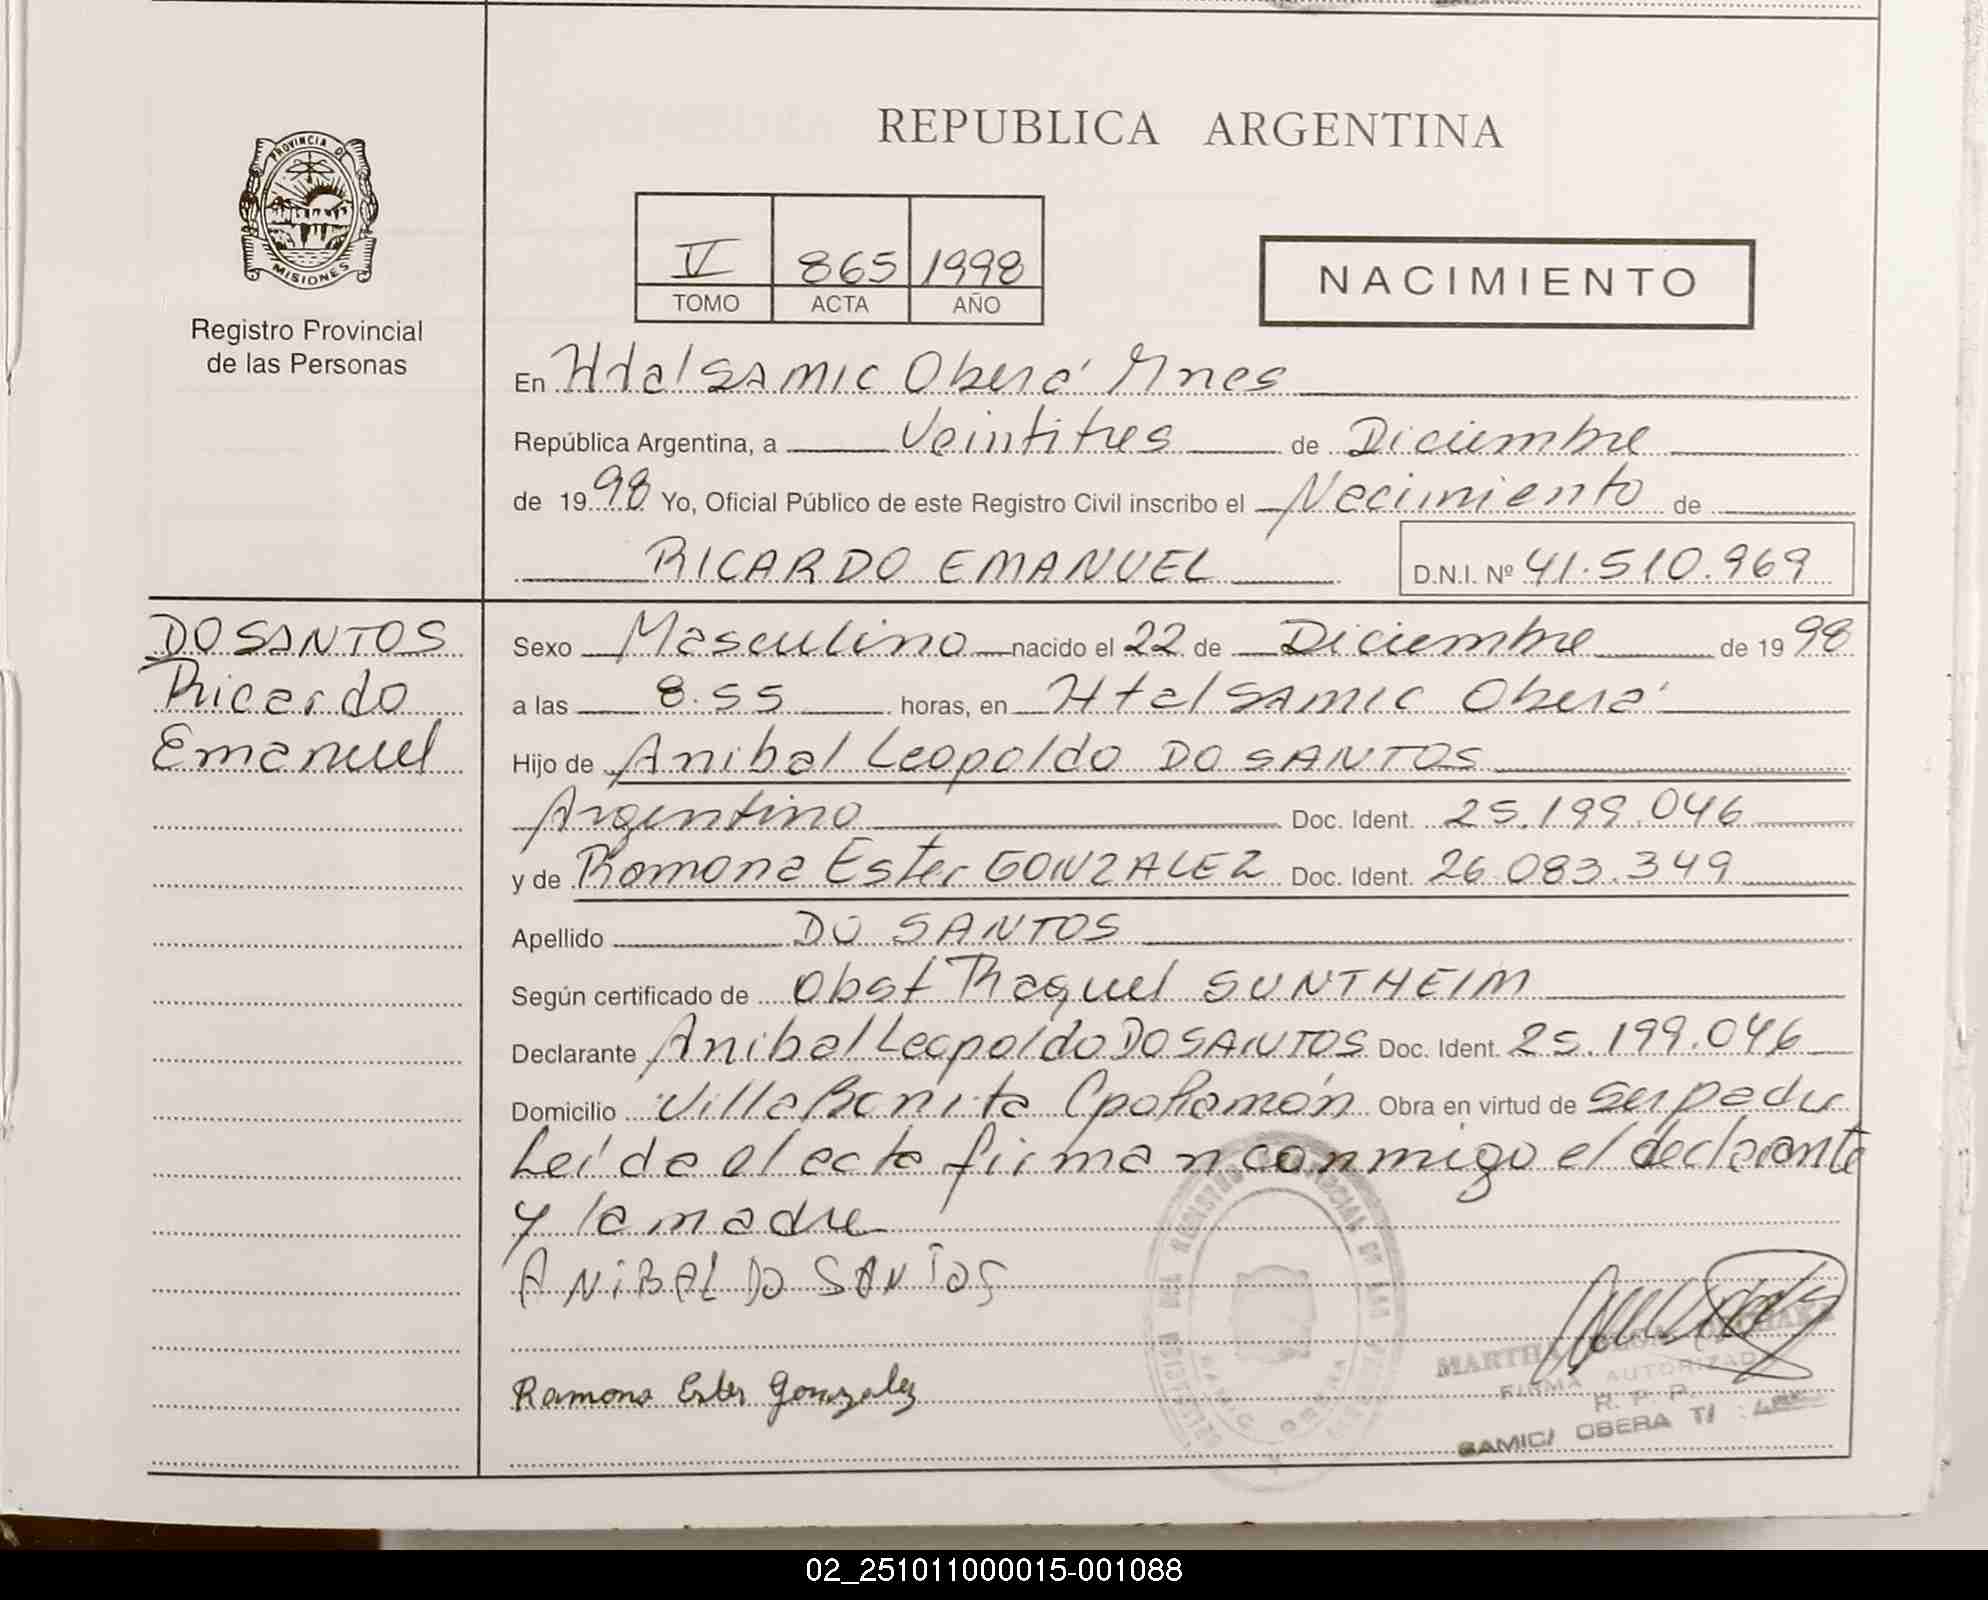 REPUBLICA ARGENTINA
PROVINCIA DE
MISIONES
Registro Provincial
de las Personas
V 865 1998
TOMO ACTA AÑO
NACIMIENTO
En Htal SAMIC Oberá Mnes
República Argentina, a Veintitres de Diciembre
de 1998 Yo, Oficial Público de este Registro Civil inscribo el Nacimiento de
RICARDO EMANUEL D.N.I. Nº 41.510.969
DO SANTOS
Ricardo
Emanuel
Sexo Masculino nacido el 22 de Diciembre de 1998
a las 8.55 horas, en Htal SAMIC Oberá
Hijo de Anibal Leopoldo DO SANTOS
Argentino Doc. Ident. 25.199.046
y de Ramona Ester GONZALEZ Doc. Ident. 26.083.349
Apellido DO SANTOS
Según certificado de Obst Raquel SUNTHEIM
Declarante Anibal Leopoldo DO SANTOS Doc. Ident. 25.199.046
Domicilio Villa Bonita Cpo Ramón Obra en virtud de ser padre
Leída el acta firman conmigo el declarante
y la madre
ANIBAL DO SANTOS
Ramona Ester Gonzalez
MARTHA
FIRMA AUTORIZADA
R. P. P.
SAMIC/ OBERA
02_251011000015-001088